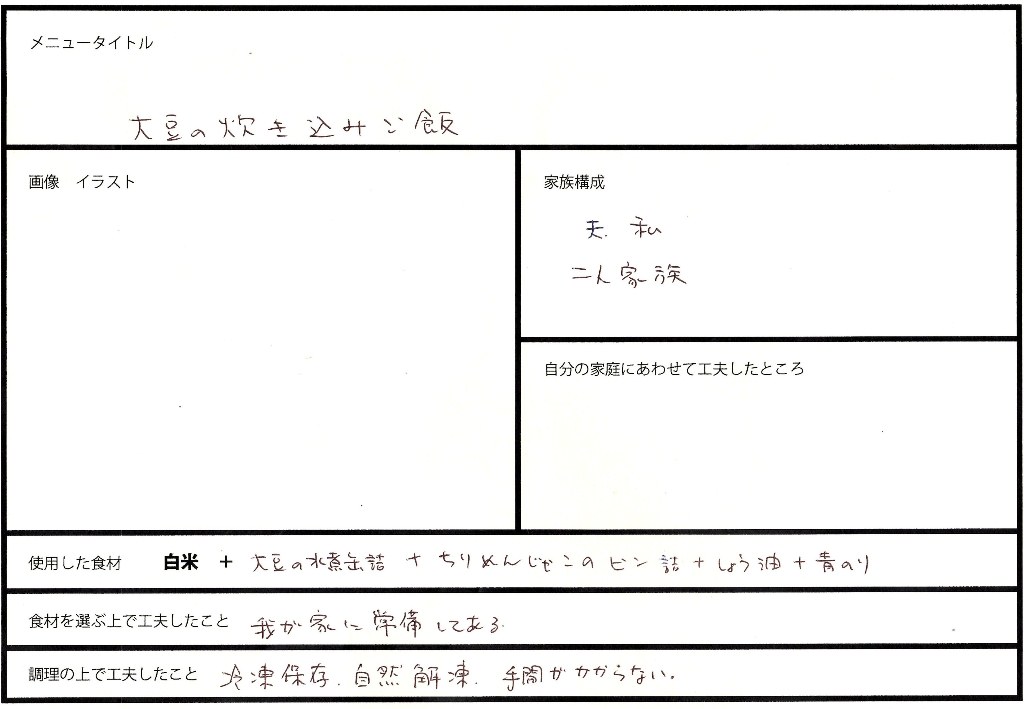 メニュータイトル
大豆の炊き込みご飯
画像　イラスト
家族構成
夫、私
二人家族
自分の家庭にあわせて工夫したところ
使用した食材　白米 + 大豆の水煮缶詰 + ちりめんじゃこのビン詰 + しょう油 + 青のり
食材を選ぶ上で工夫したこと　我が家に常備してある。
調理の上で工夫したこと　冷凍保存、自然解凍、手間がかからない。